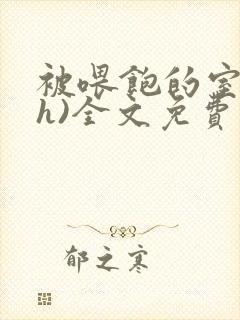 被喂饱的室
h)全文免費
郁之寒